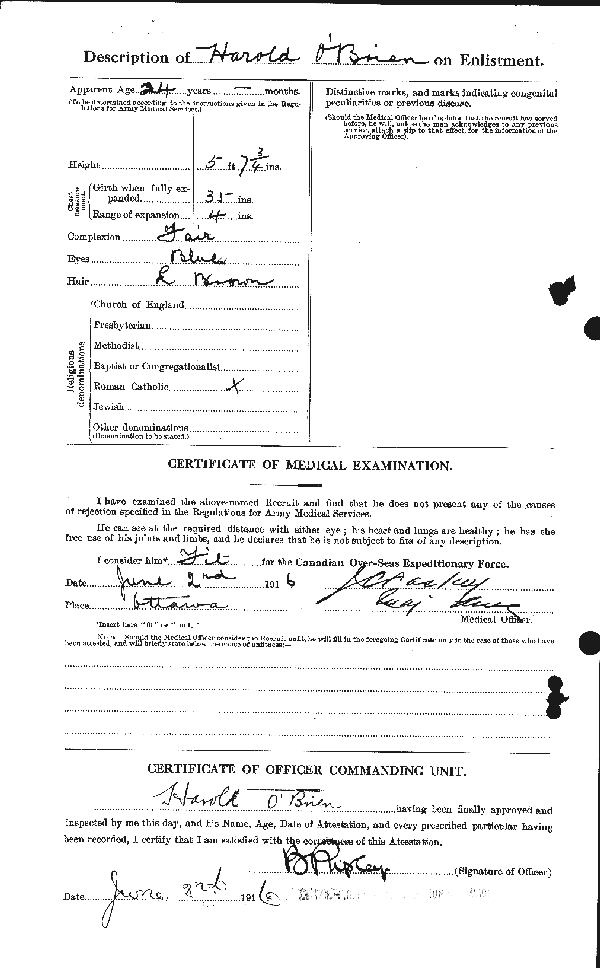 Description of Harold O'Brien on Enlistment.
Apparent Age 24 years — months.
(To be determined according to the instructions given in the Regulations for Army Medical Services.)
Height 5 ft 7 3/4 ins.
Chest Measurement.
Girth when fully expanded 35 ins.
Range of expansion 4 ins.
Complexion Fair
Eyes Blue
Hair L Brown
Religious denominations.
Church of England
Presbyterian
Methodist
Baptist or Congregationalist
Roman Catholic X
Jewish
Other denominations
(Denomination to be stated.)
Distinctive marks, and marks indicating congenital
peculiarities or previous disease.
(Should the Medical Officer be of opinion that the recruit has served
before, he will, unless the man acknowledges to any previous
service, attach a slip to that effect, for the information of the
Approving Officer).
CERTIFICATE OF MEDICAL EXAMINATION.
I have examined the above-named Recruit and find that he does not present any of the causes
of rejection specified in the Regulations for Army Medical Services.
He can see at the required distance with either eye; his heart and lungs are healthy; he has the
free use of his joints and limbs, and he declares that he is not subject to fits of any description.
I consider him* Fit for the Canadian Over-Seas Expeditionary Force.
Date June 2nd 1916
Place Ottawa
Medical Officer.
*Insert here "fit" or "unfit."
NOTE.—Should the Medical Officer consider the Recruit unfit, he will fill in the foregoing Certificate only in the case of those who have
been attested, and will briefly state below the cause of unfitness:—
CERTIFICATE OF OFFICER COMMANDING UNIT.
Harold O'Brien having been finally approved and
inspected by me this day, and his Name, Age, Date of Attestation, and every prescribed particular having
been recorded, I certify that I am satisfied with the correctness of this Attestation.
(Signature of Officer)
Date June 22nd 1916